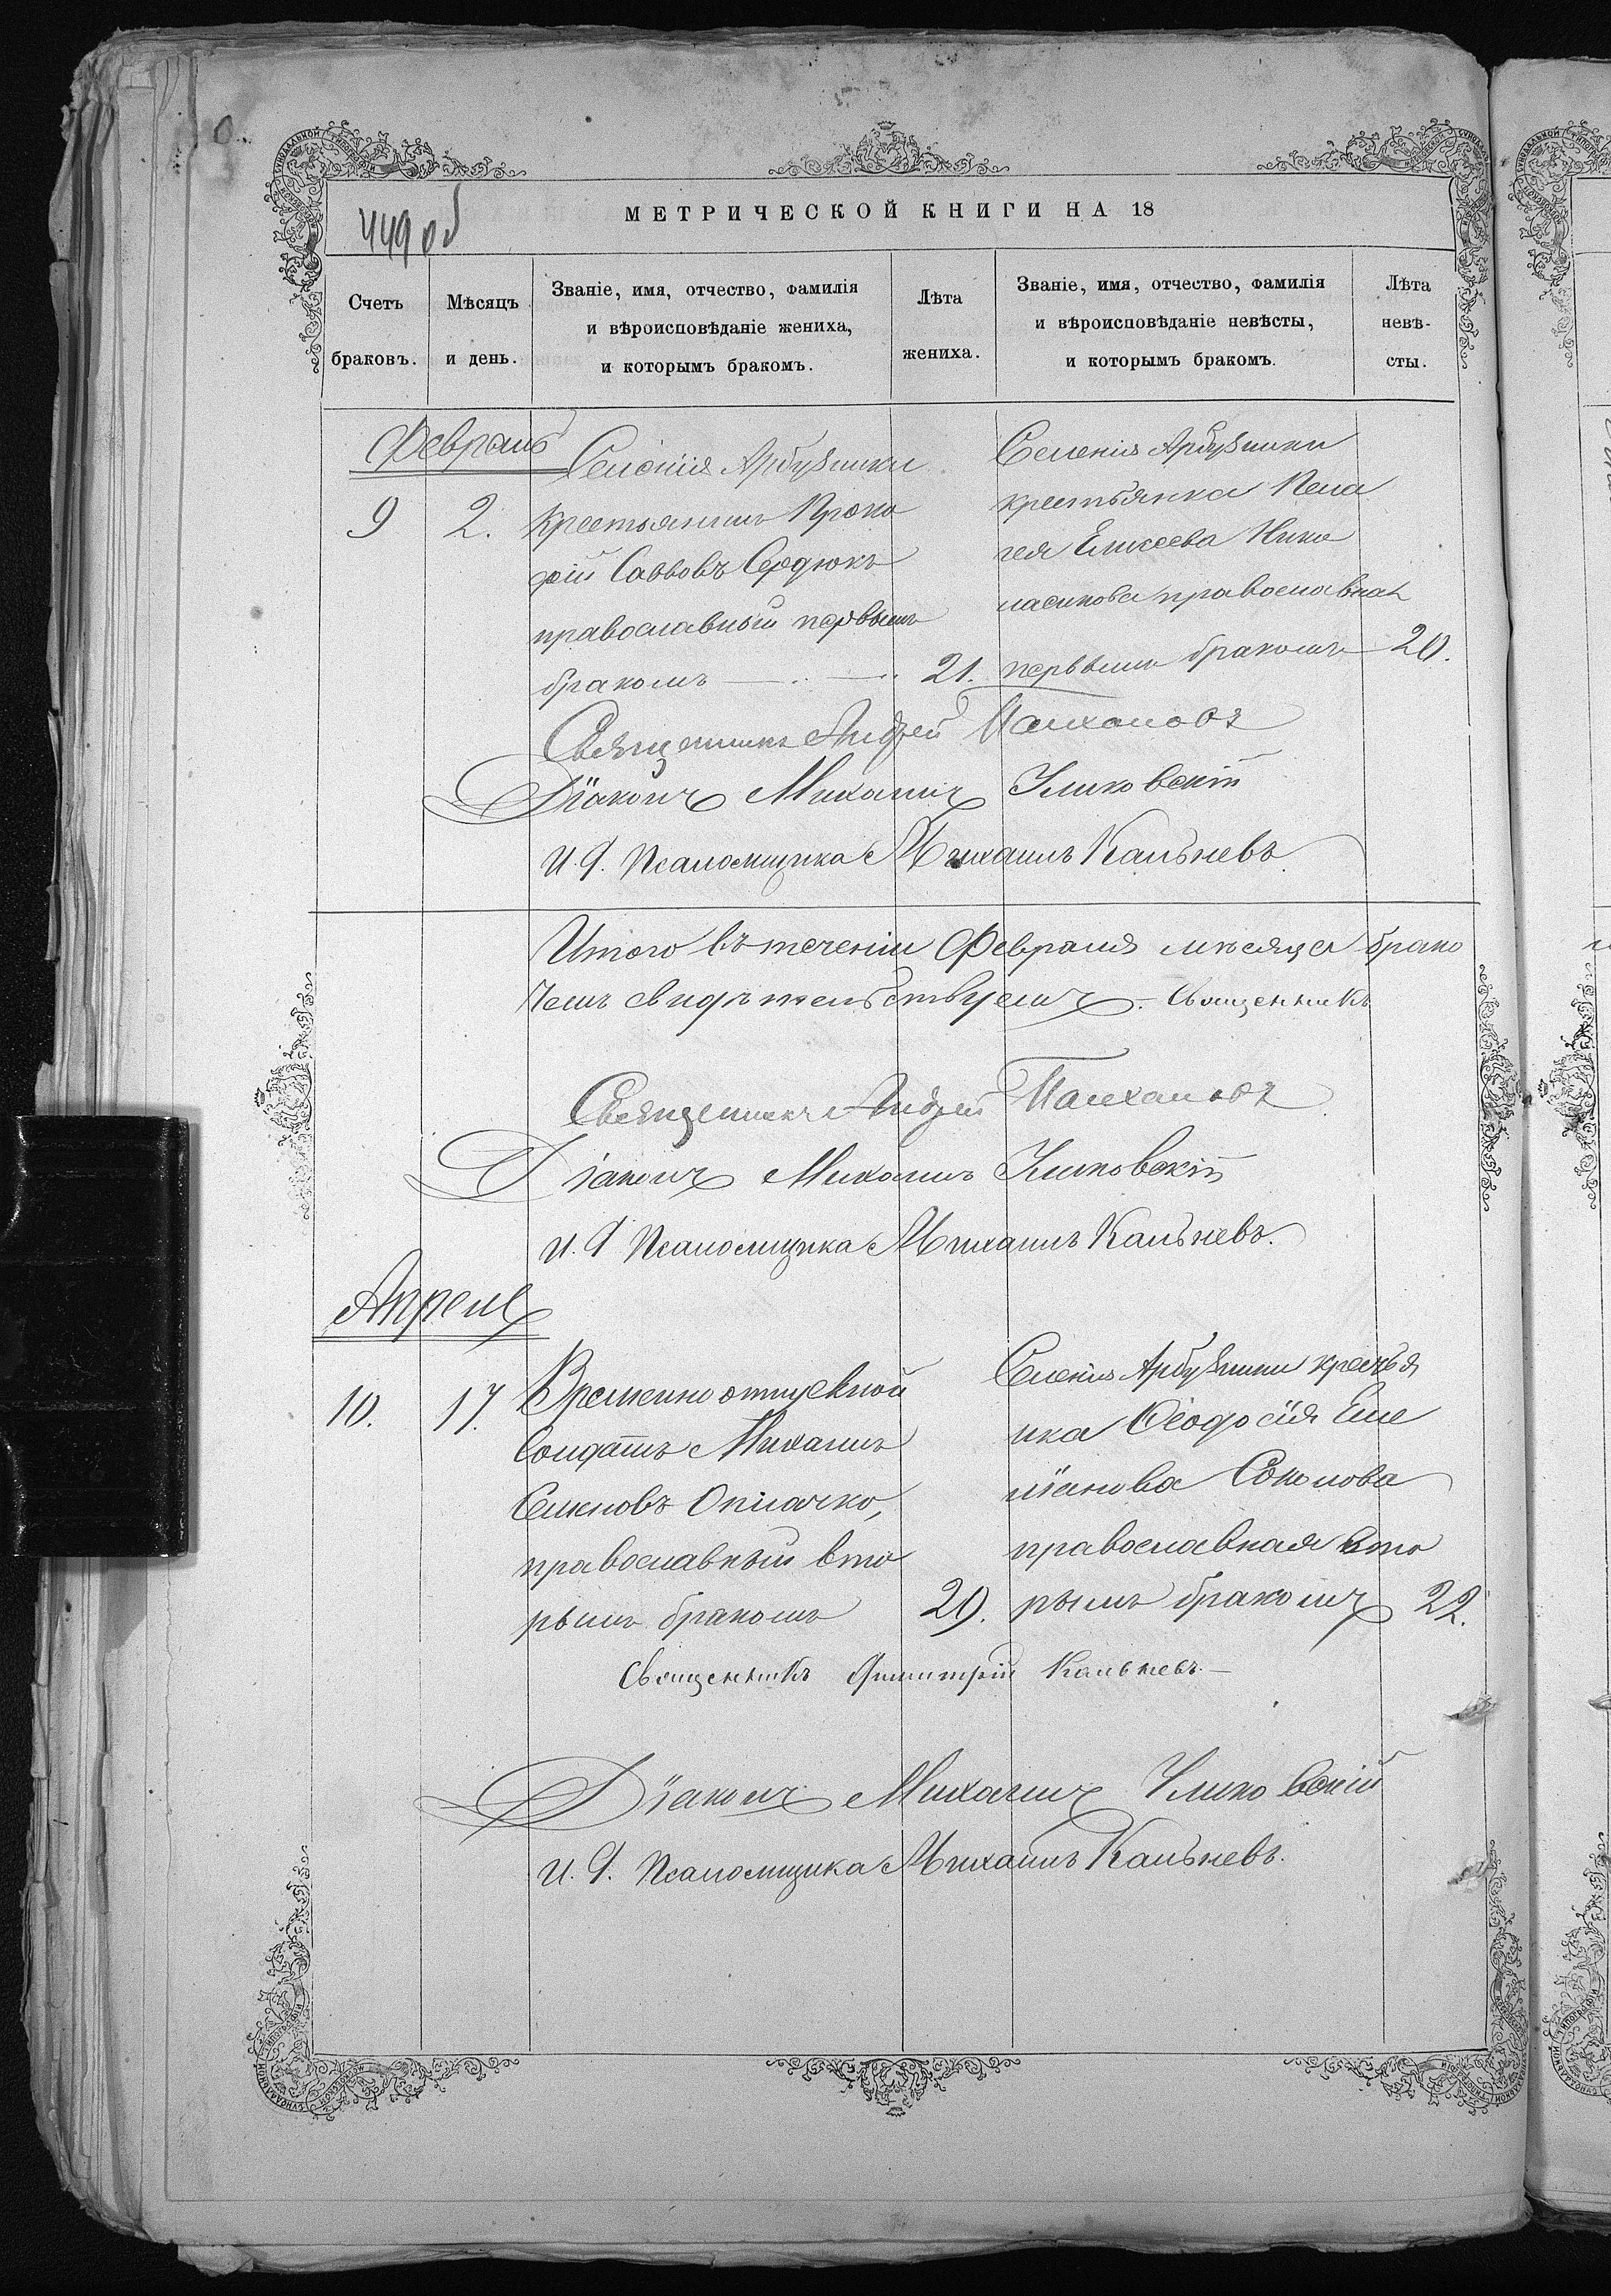 449 об
МЕТРИЧЕСКОЙ КНИГИ НА 18
Счетъ браковъ.
Мѣсяцъ и день.
Званіе, имя, отчество, фамилія
и вѣроисповѣданіе жениха,
и которымъ бракомъ.
Лѣта
жениха.
Званіе, имя, отчество, фамилія
и вѣроисповѣданіе невѣсты,
и которымъ бракомъ.
Лѣта
невѣ-
сты.
Февраль
9 2.
Селенія Арбузинки
крестьянинъ Проко
фій Саввовъ Сердюкъ
православный первымъ
бракомъ 21.
Селенія Арбузинки
крестьянка Пела
гея Елисеева
православная
первымъ бракомъ 20.
Священникъ Андрей
Діаконъ Михаилъ
И. Д. Псаломщика Михаилъ Кальневъ.
Итого въ теченіи Февраля мѣсяца брако
чемъ свидѣтельствуемъ. Священникъ
Священникъ Андрей
Діаконъ Михаилъ
И. Д. Псаломщика Михаилъ Кальневъ.
Апрель
10. 17.
Временно отпускной
Солдатъ Михаилъ
Семеновъ Оплачко,
православный вто
рымъ бракомъ 29.
Селенія Арбузинки крестья
нка Ѳеодосія Еме
ліанова Соколова
православная вто
рымъ бракомъ 22.
Священникъ Димитрій Кальневъ.
Діаконъ Михаилъ
И. Д. Псаломщика Михаилъ Кальневъ.